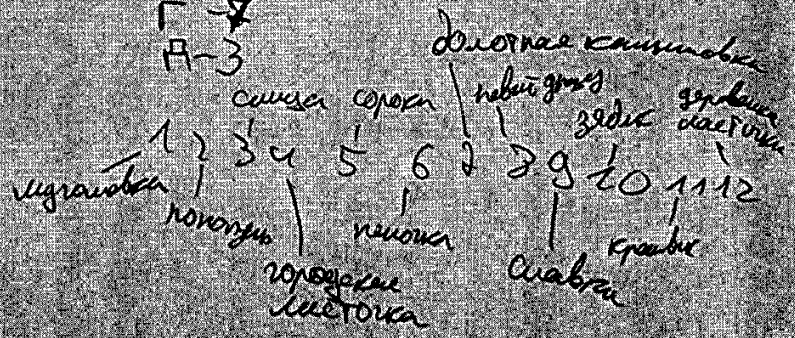 Г-7
Д-3
болотная камышовка
синица сорока певчий дрозд
зяблик деревенская
ласточка
1 2 3 4 5 6 7 8 9 10 11 12
мухоловка
поползень
пеночка
славка
крапивник
городская
ласточка